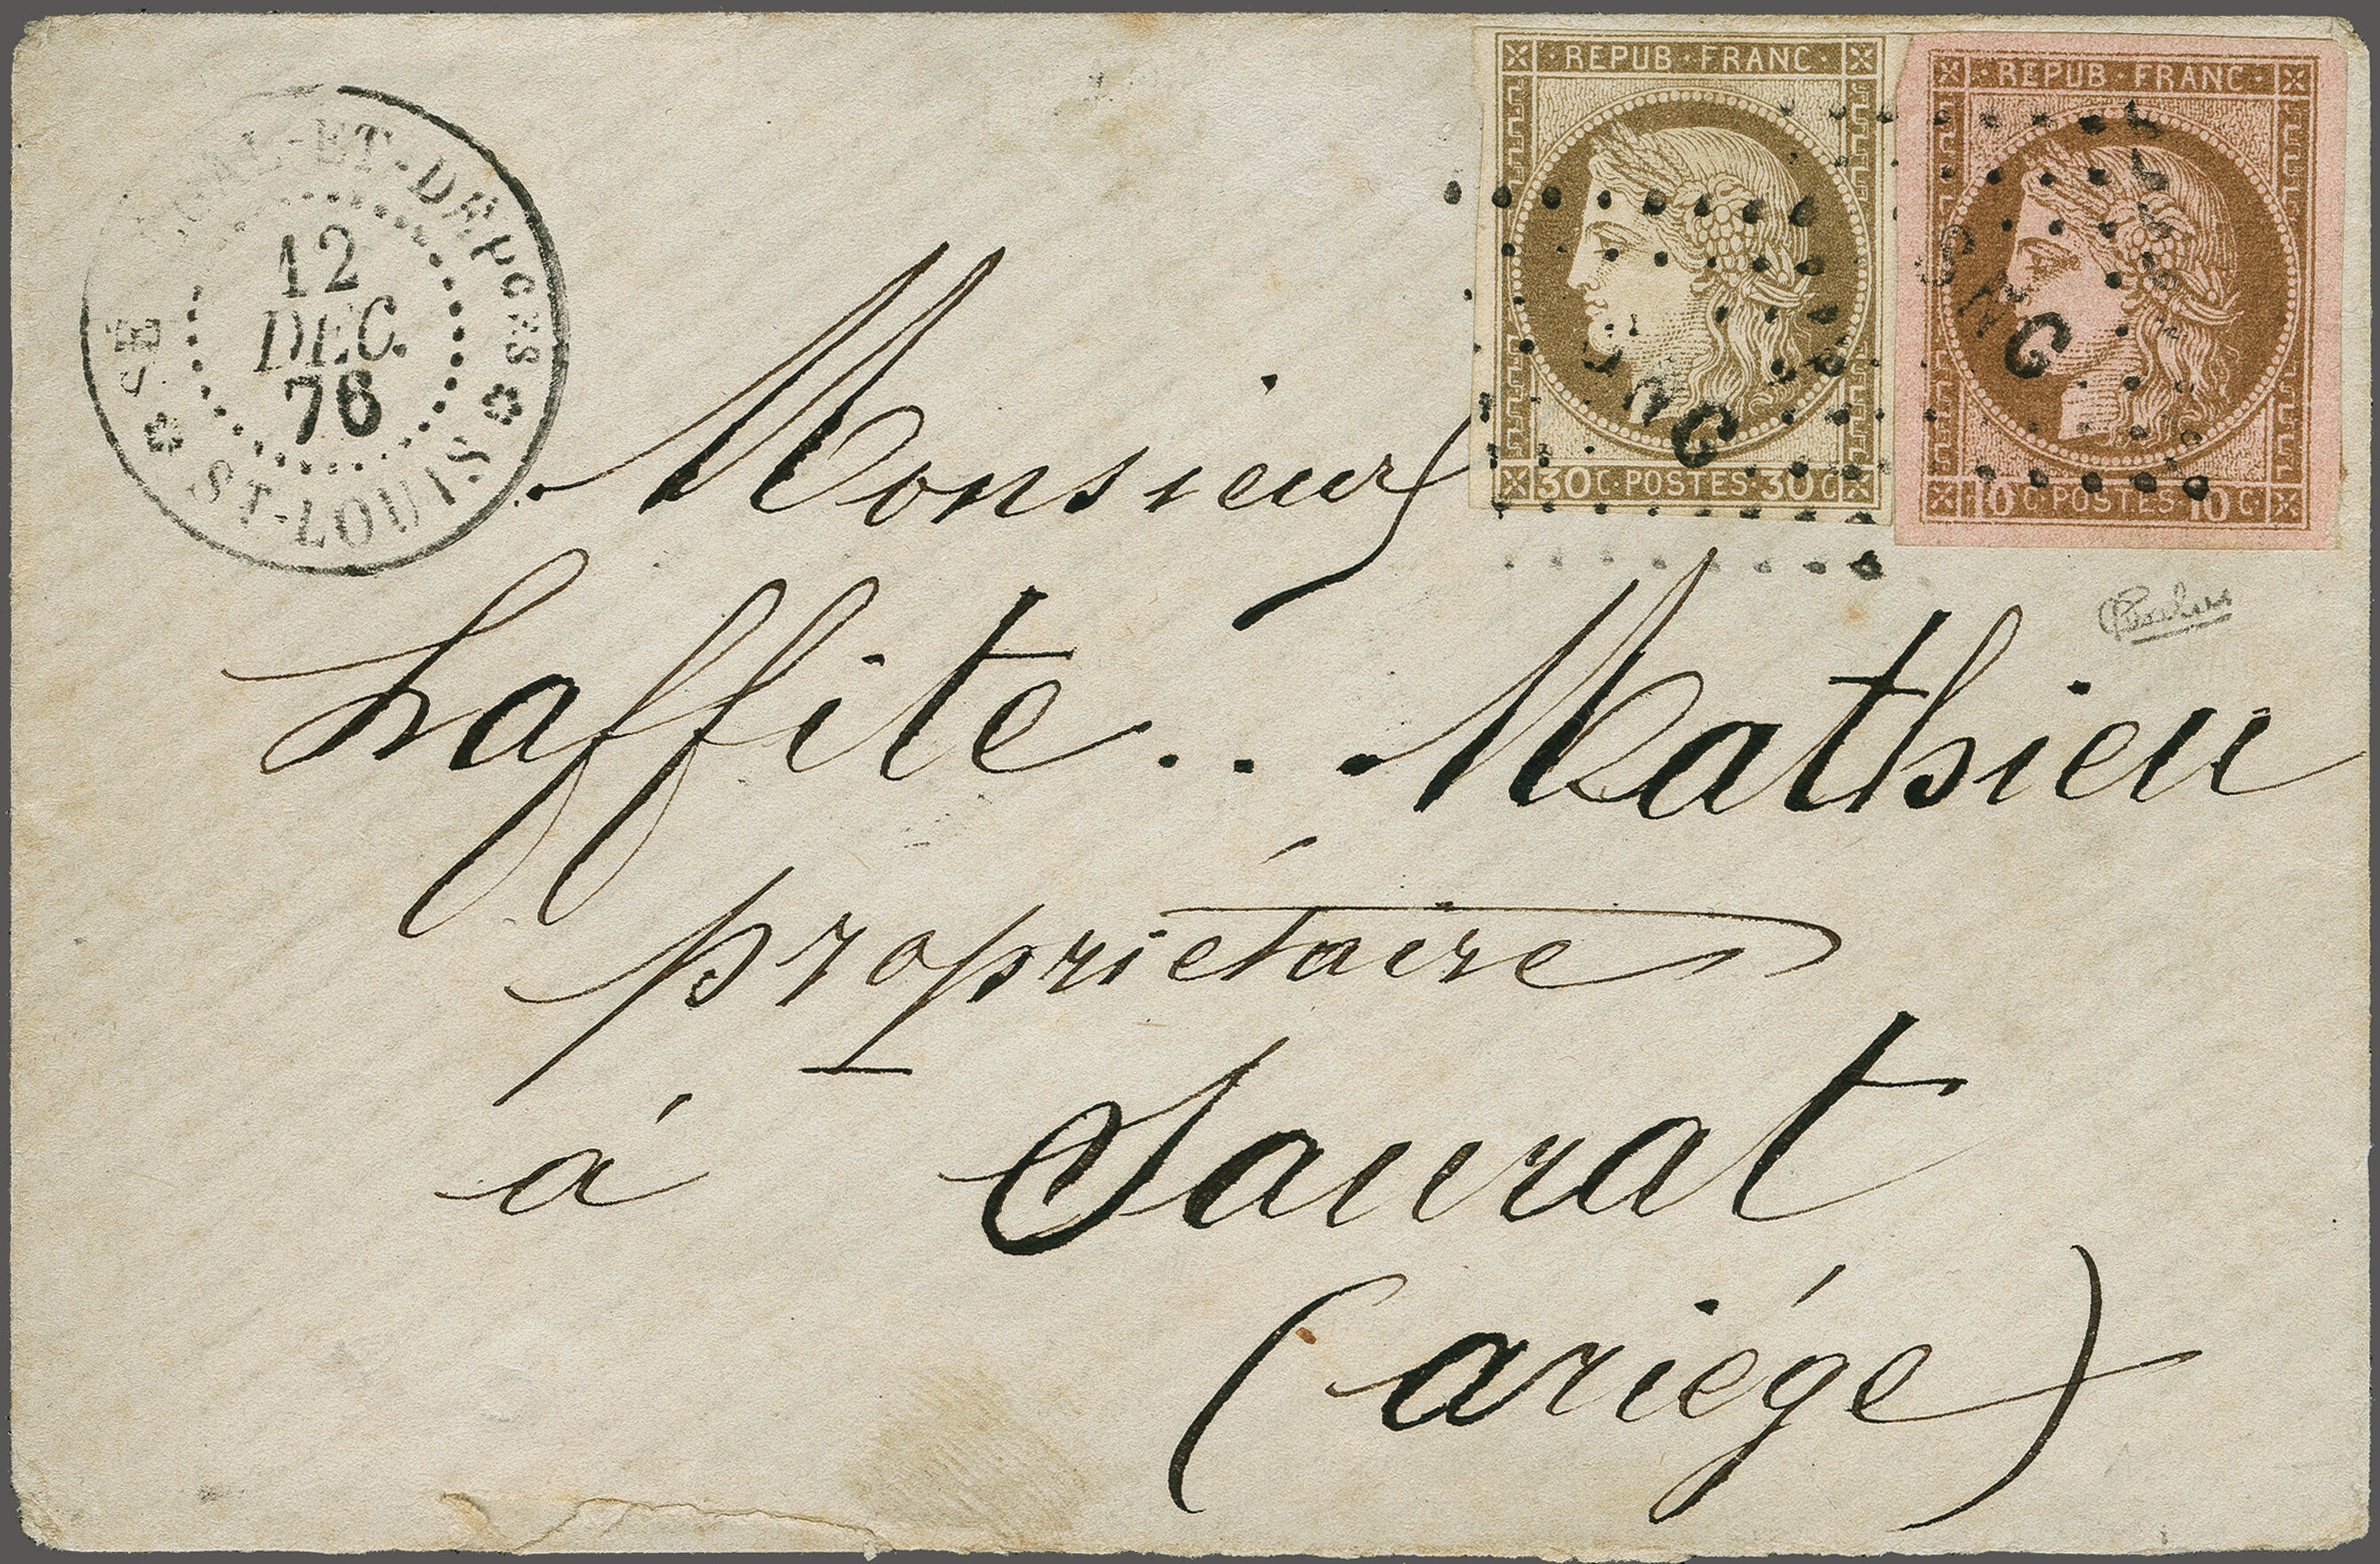 SÉNÉGAL-ET-DÉPCES
12
DEC.
76
ST-LOUIS
REPUB·FRANC·
30C·POSTES·30C
·REPUB·FRANC·
10C·POSTES·10C
SNG
SNG
Monsieur
Laffite.. Mathieu
propriétaire
à Saurat
(ariége)